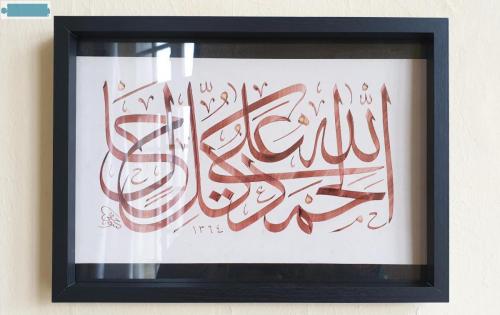 الحمد لله على كل حال
١٣٦٤